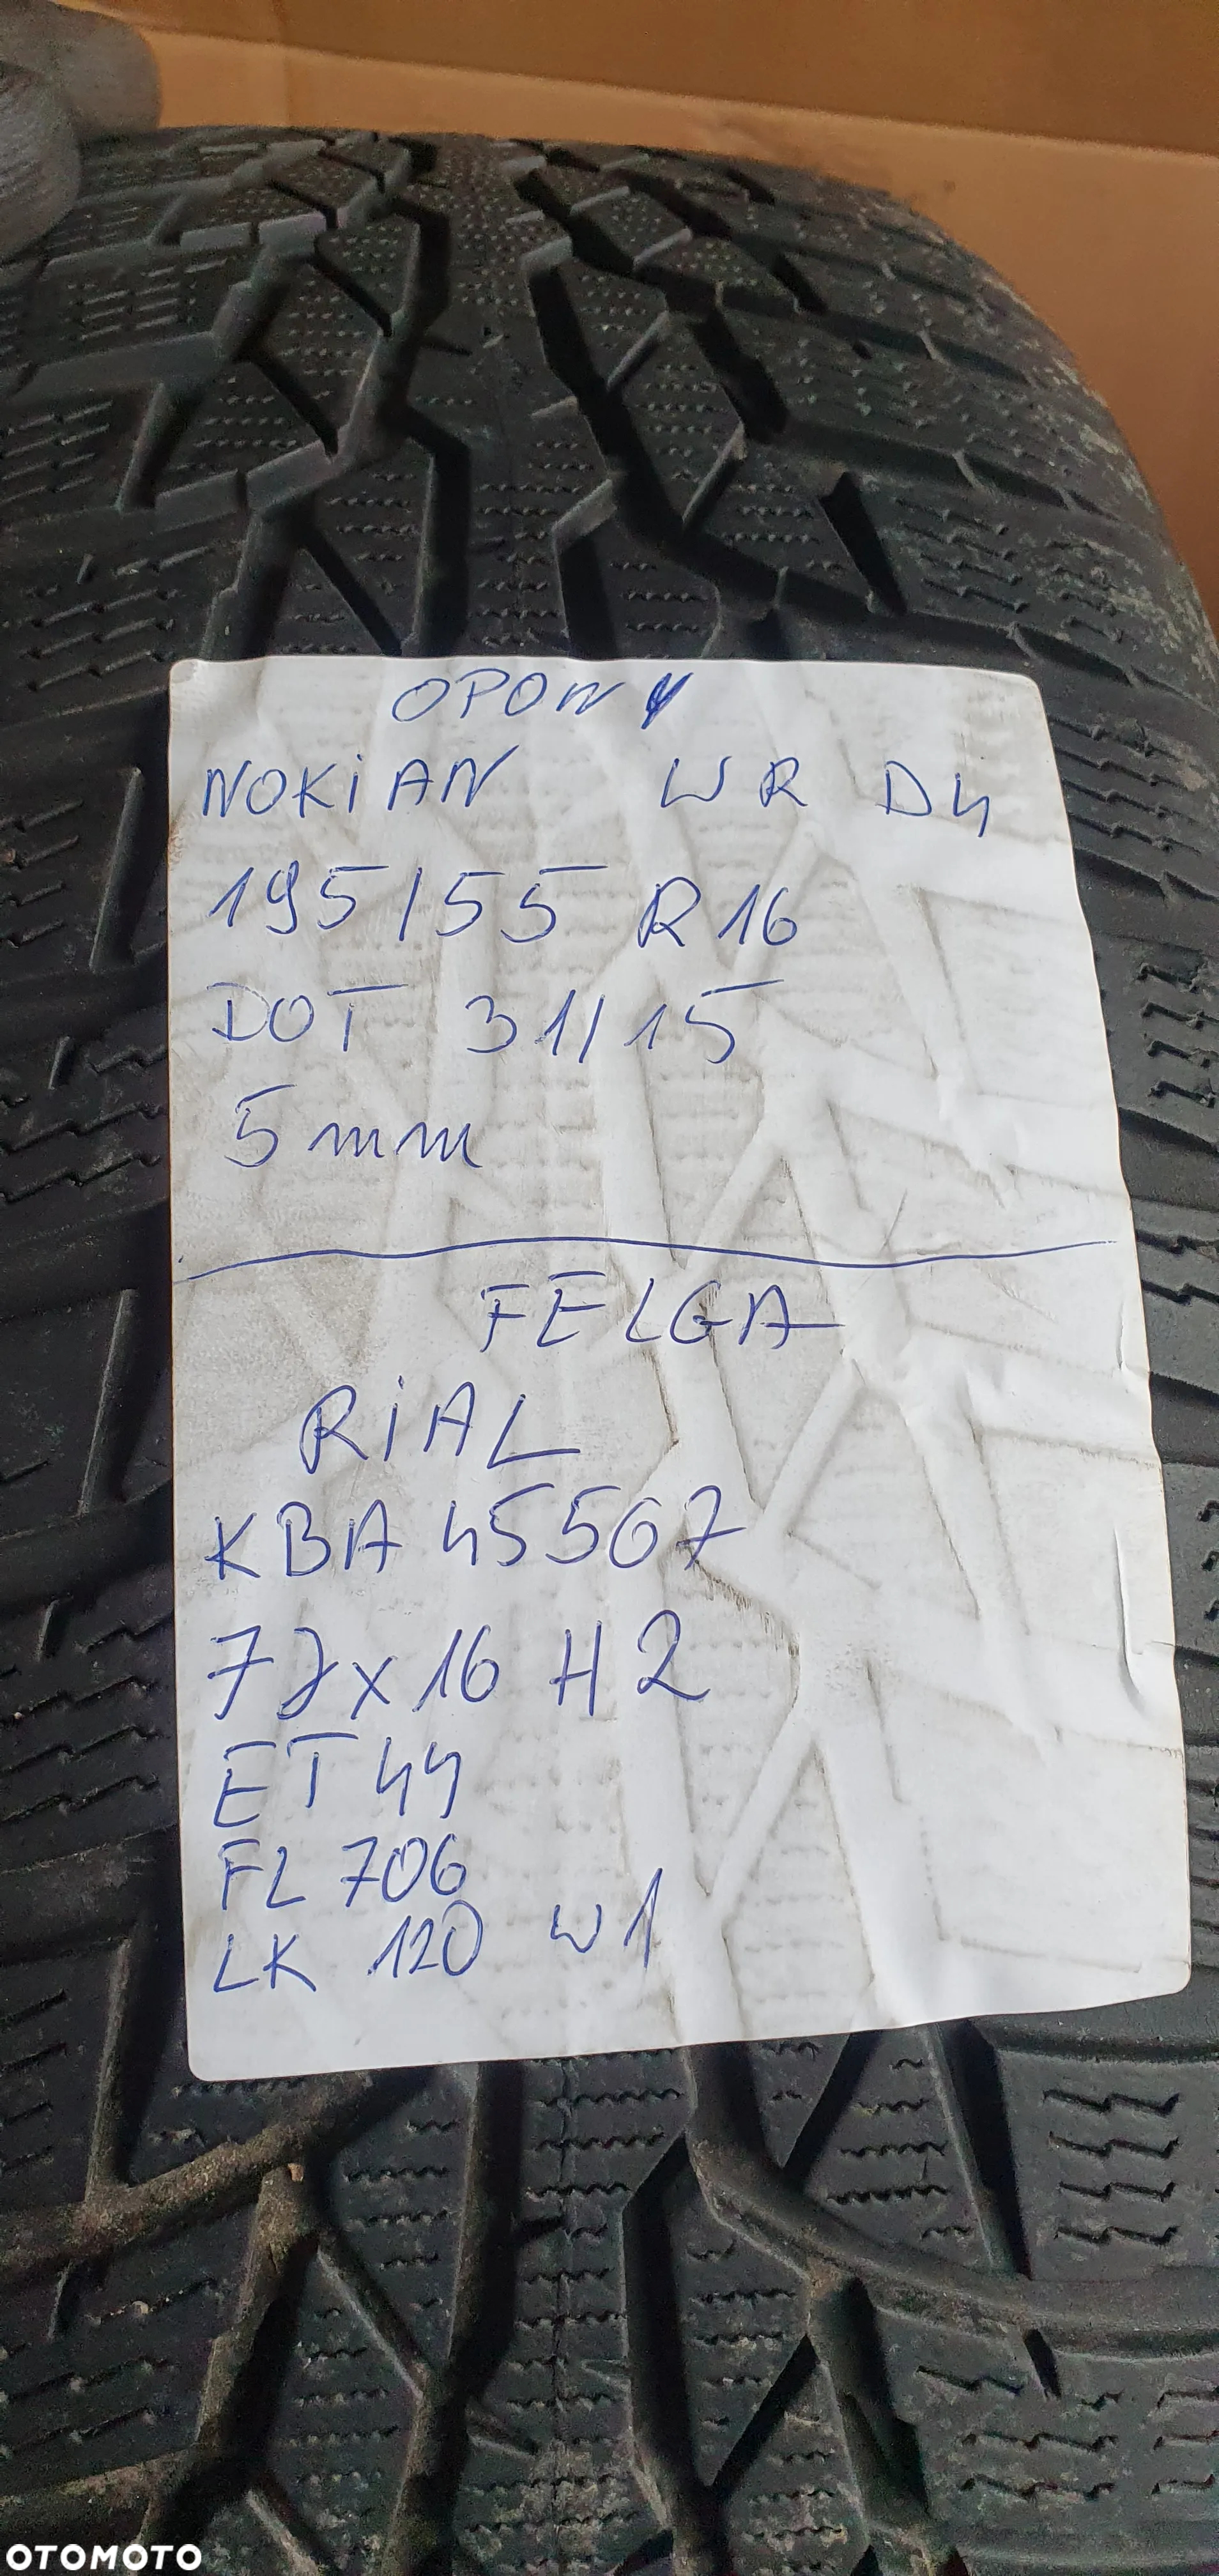 OPONY
NOKiAN WR D4
195/55 R16
DOT 31/15
5mm
FELGA
RiAL
KBA 45507
7Jx16 H2
ET44
FL706
LK 120 W1
OTOMOTO